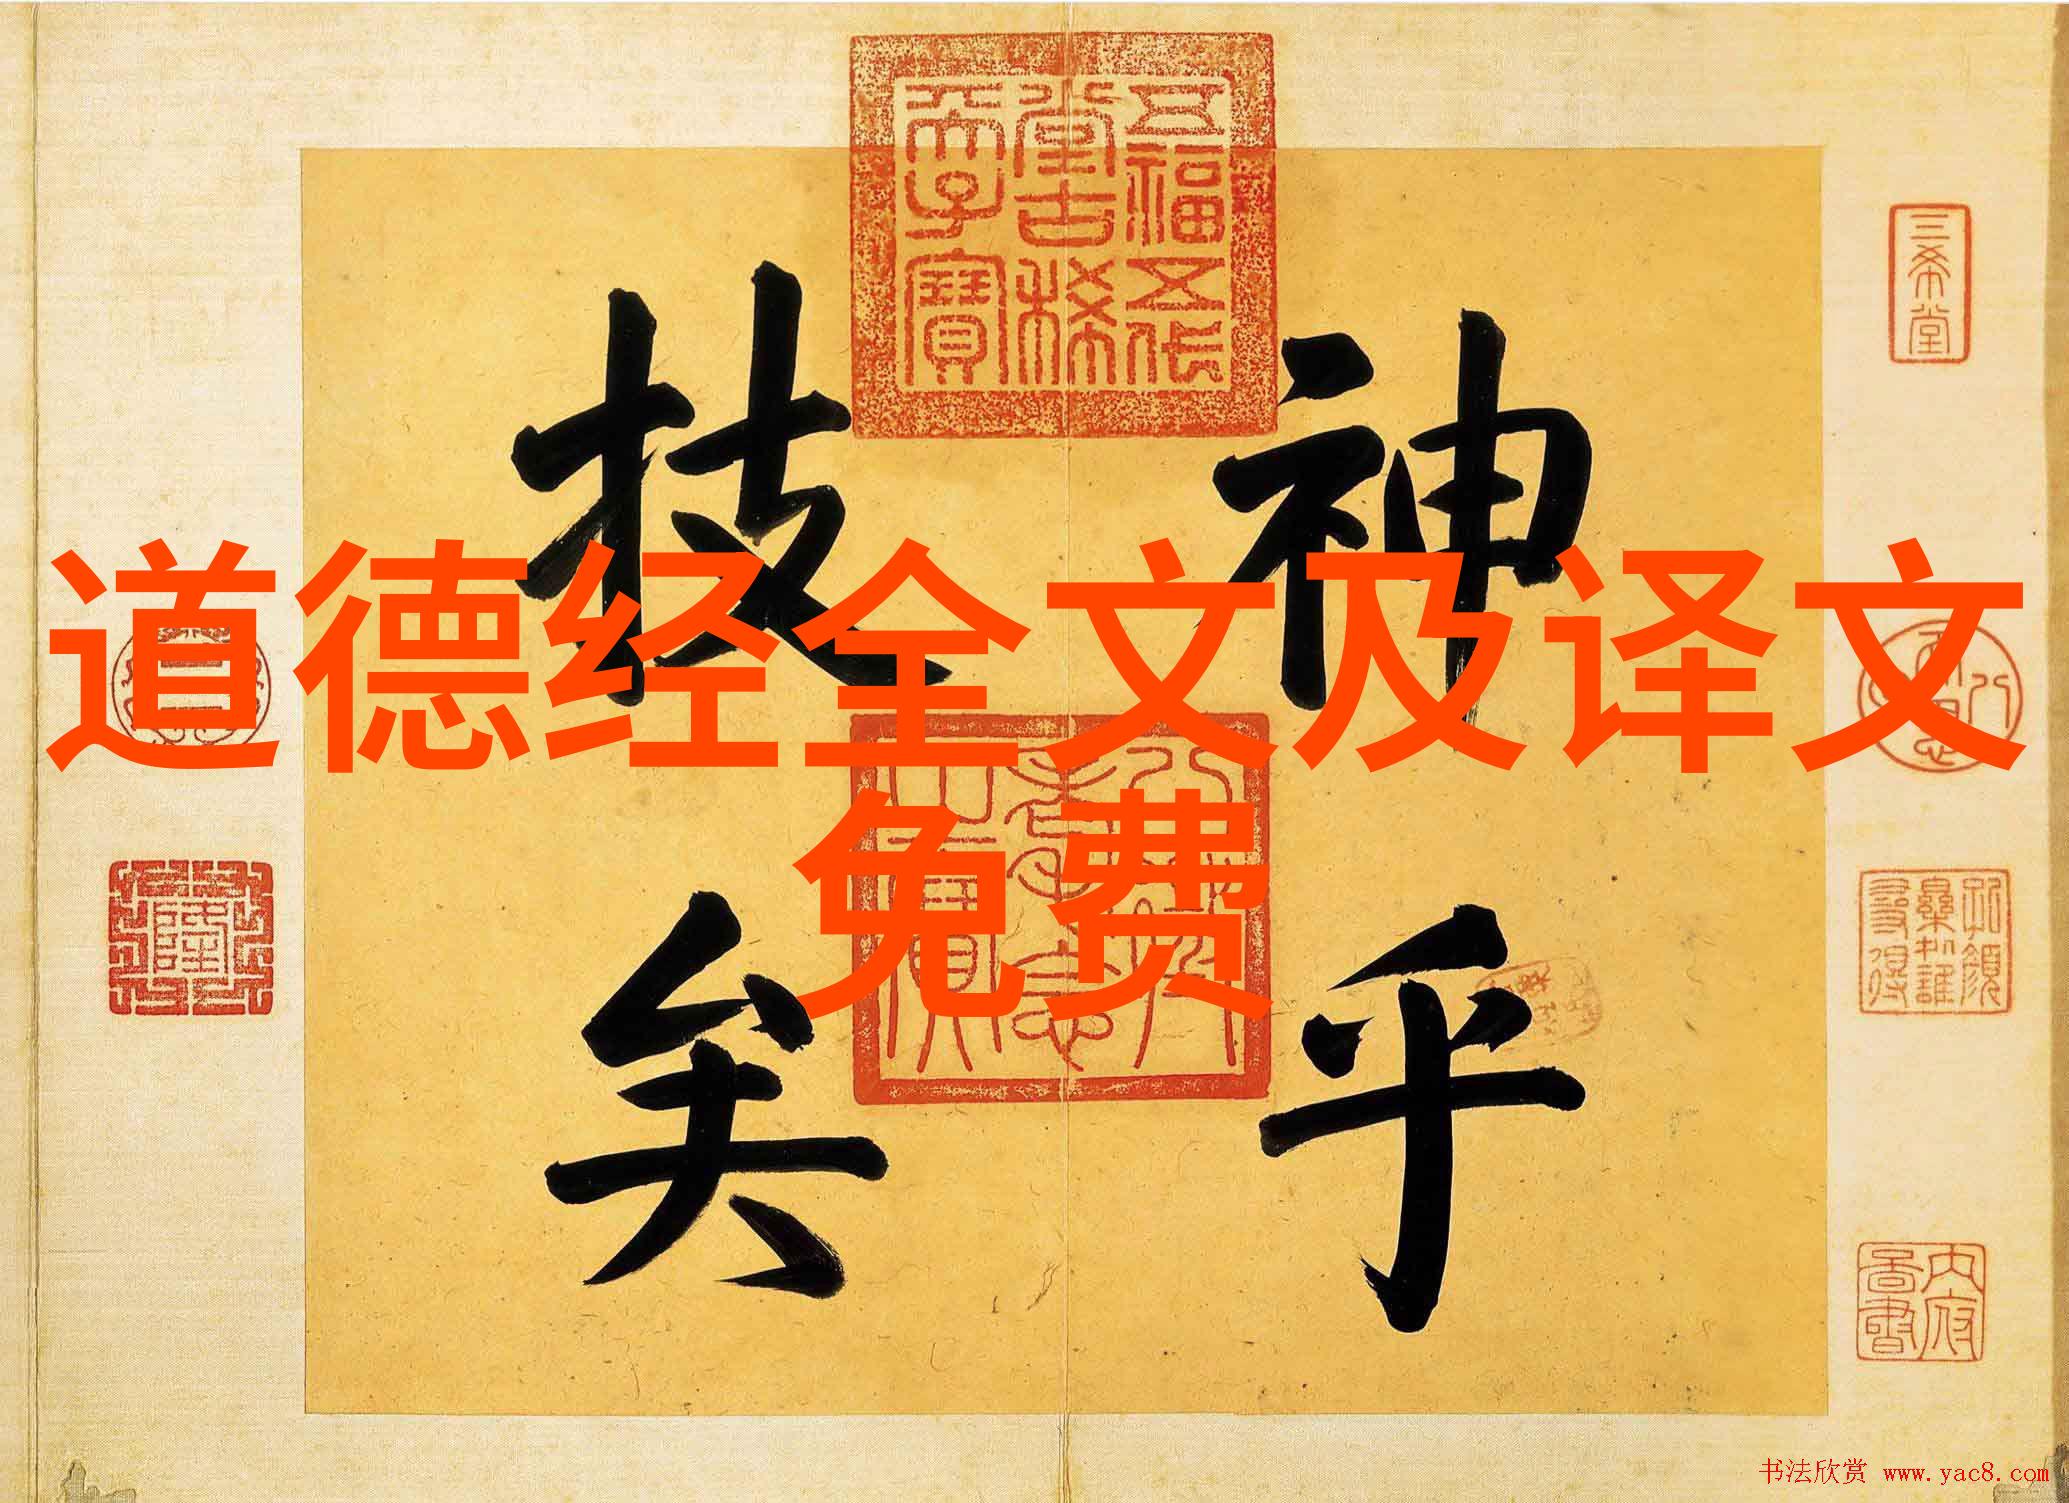 道德经全文及译文
免费
神乎
技矣
五福五代
堂古稀
天子寶
八徵
耄念
之寶
三希堂
書法欣赏 www.yac8.com